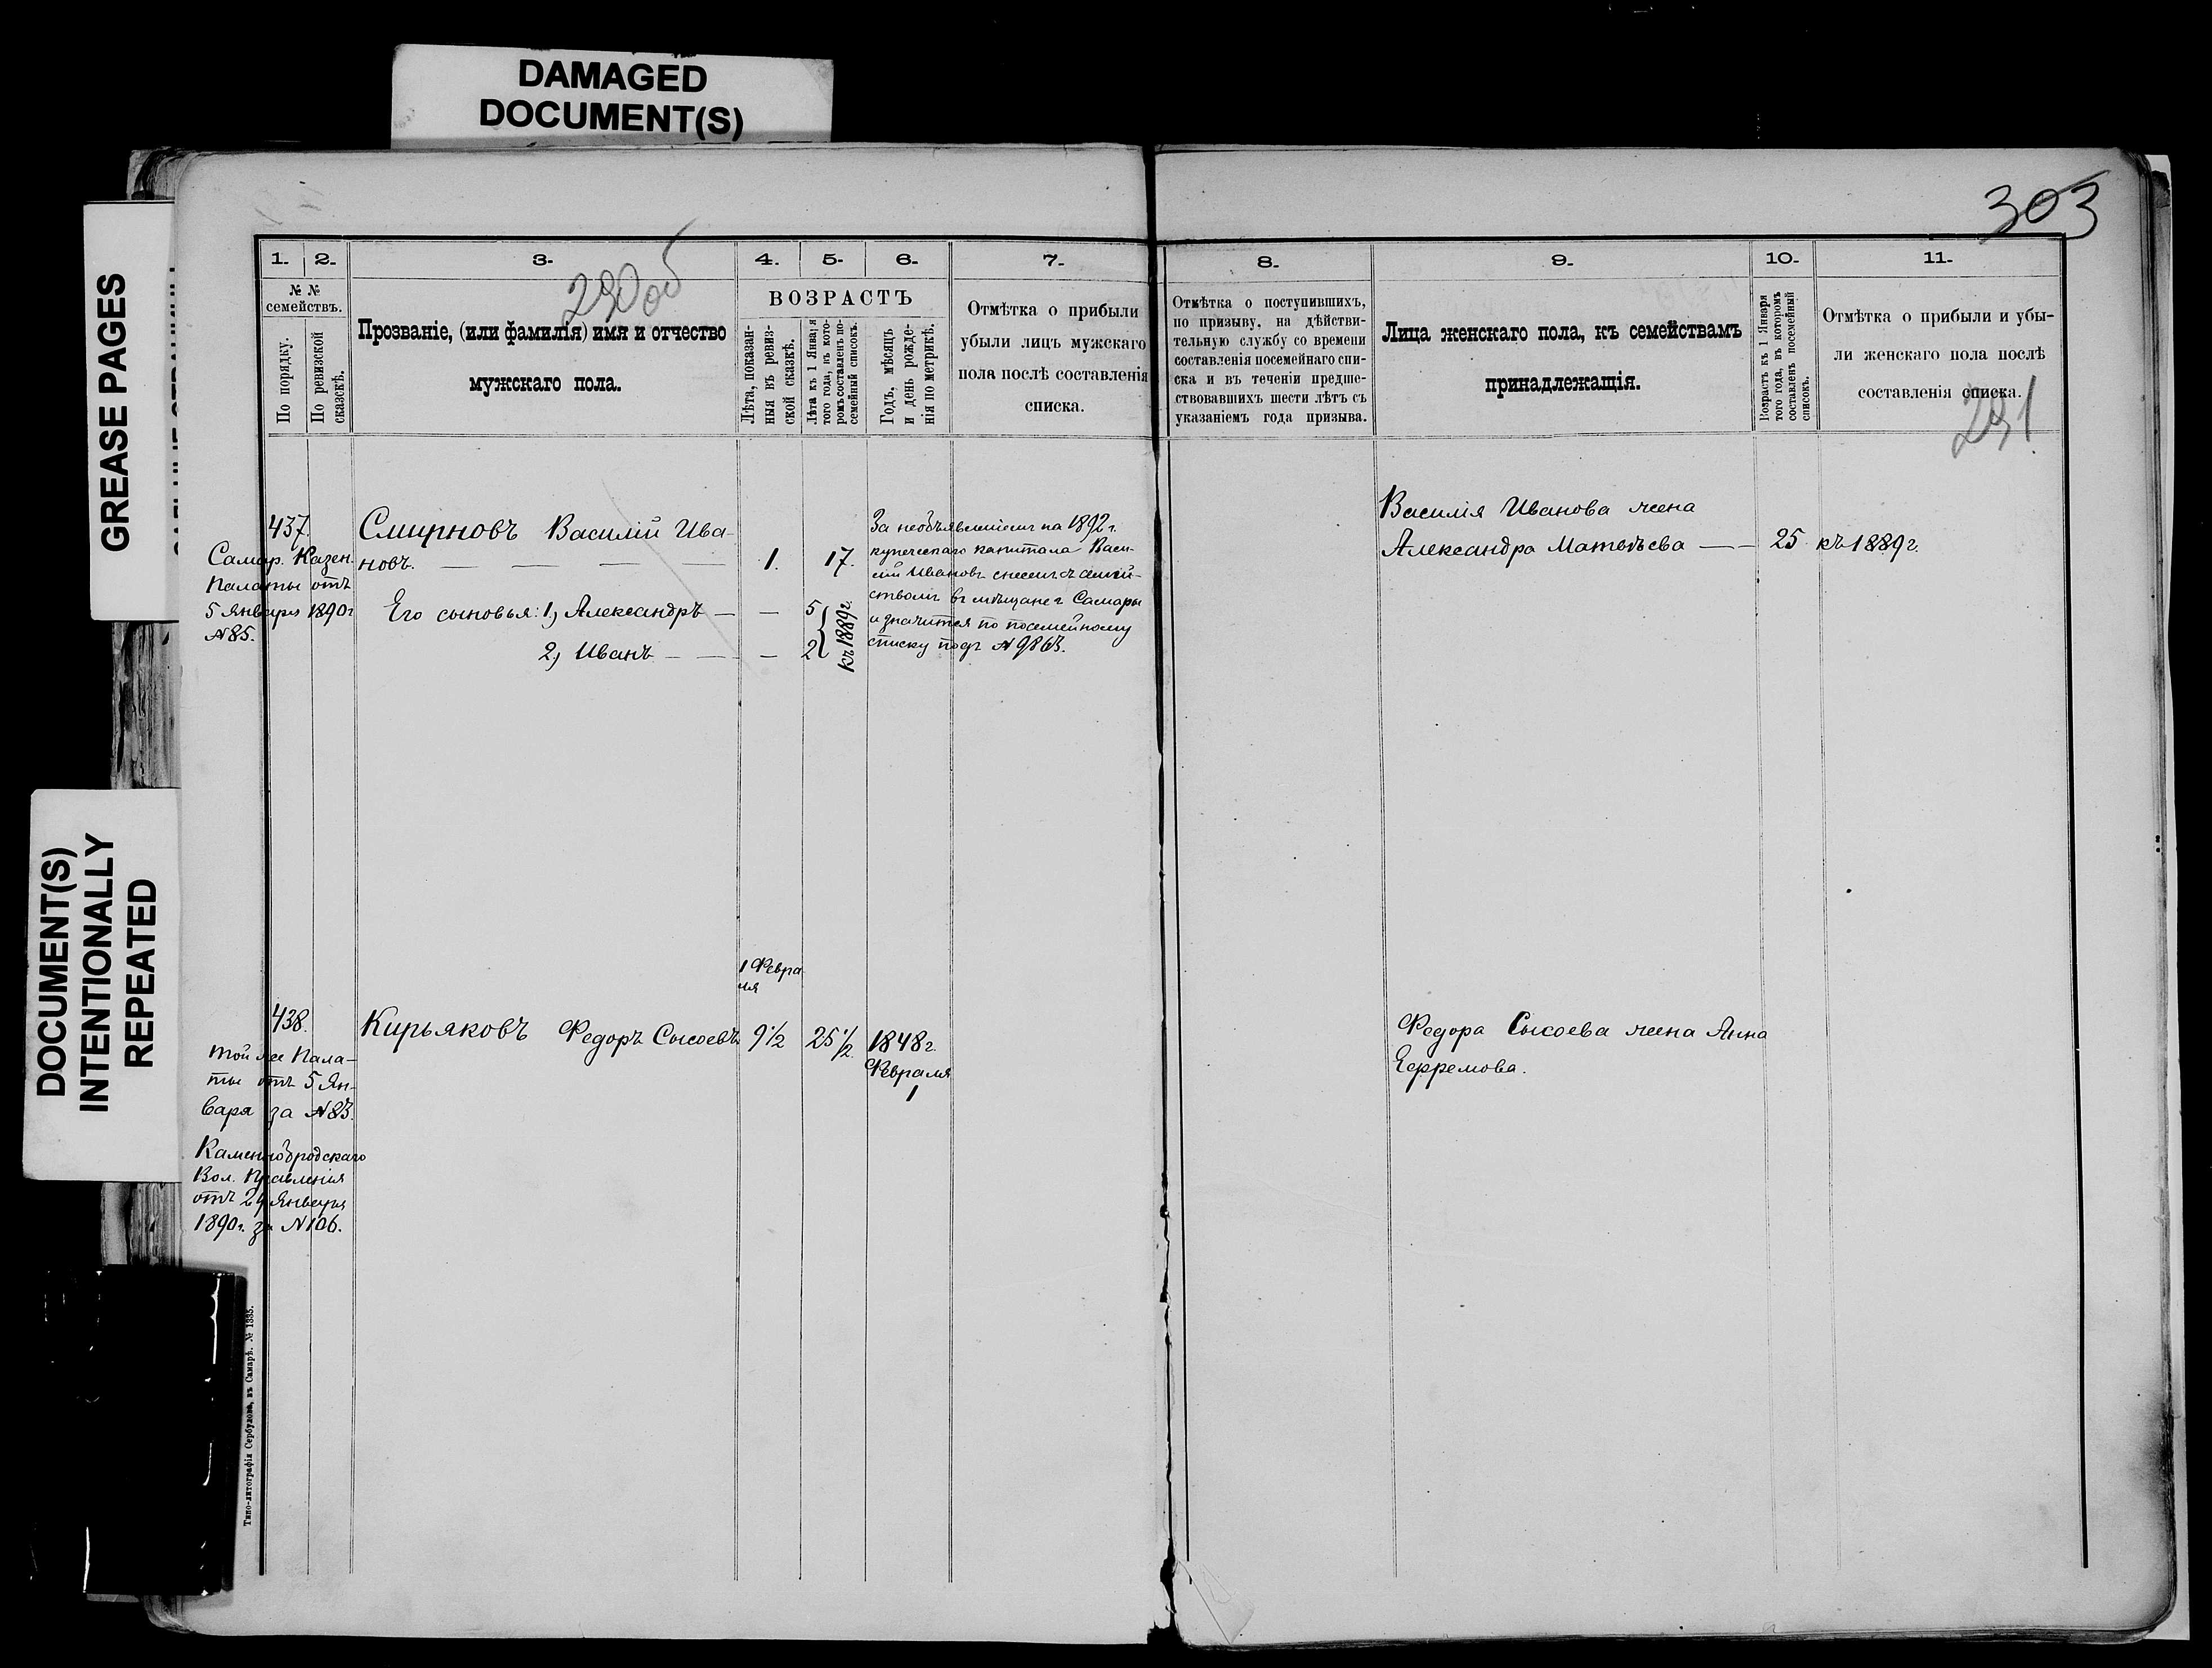 DAMAGED
DOCUMENT(S)
GREASE PAGES
DOCUMENT(S)
INTENTIONALLY
REPEATED
303
290 об
291
1. 2. 3. 4. 5. 6. 7. 8. 9. 10. 11.
№ №
семействъ.
По порядку.
По ревизской
сказкѣ.
Прозваніе, (или фамилія) имя и отчество
мужскаго пола.
ВОЗРАСТЪ
Лѣта, показан-
ныя въ ревиз-
ской сказкѣ.
Лѣта къ 1 Января
того года, въ кото-
ромъ составленъ по-
семейный списокъ.
Годъ, мѣсяцъ
и день рожде-
нія по метрикѣ.
Отмѣтка о прибыли
убыли лицъ мужскаго
пола послѣ составленія
списка.
Отмѣтка о поступившихъ,
по призыву, на дѣйстви-
тельную службу со времени
составленія посемейнаго спи-
ска и въ теченіи предше-
ствовавшихъ шести лѣтъ съ
указаніемъ года призыва.
Лица женскаго пола, къ семействамъ
принадлежащія.
Возрастъ къ 1 Января
того года, въ которомъ
составленъ посемейный
списокъ.
Отмѣтка о прибыли и убы-
ли женскаго пола послѣ
составленія списка.
437.
Самар. Казен.
Палаты отъ
5 Января 1890 г
№ 85.
Смирновъ Василій Ива-
новъ. — — — — 1. 17.
Его сыновья: 1, Александръ — — 5
2, Иванъ — — — 2
къ 1889 г.
За необъявленіемъ на 1892 г.
купеческаго капитала Васи-
лій Ивановъ съ семей-
ствомъ въ мѣщане г Самары
и значится по посемейному
списку подъ № 9863.
Василія Иванова жена
Александра Матвѣева — — 25 къ 1889 г.
1 Февра
ля
438.
Той же Пала-
ты отъ 5 Ян-
варя за № 83.
Каменнобродскаго
Вол. Правленія
отъ 29 Января
1890 г. за № 106.
Кирьяковъ Федоръ Сысоевъ 9 1/2 25 1/2 1848 г.
Февраля
1
Федора Сысоева жена Анна
Ефремова.
Типо-литографія Сербулова, въ Самарѣ. № 1335.